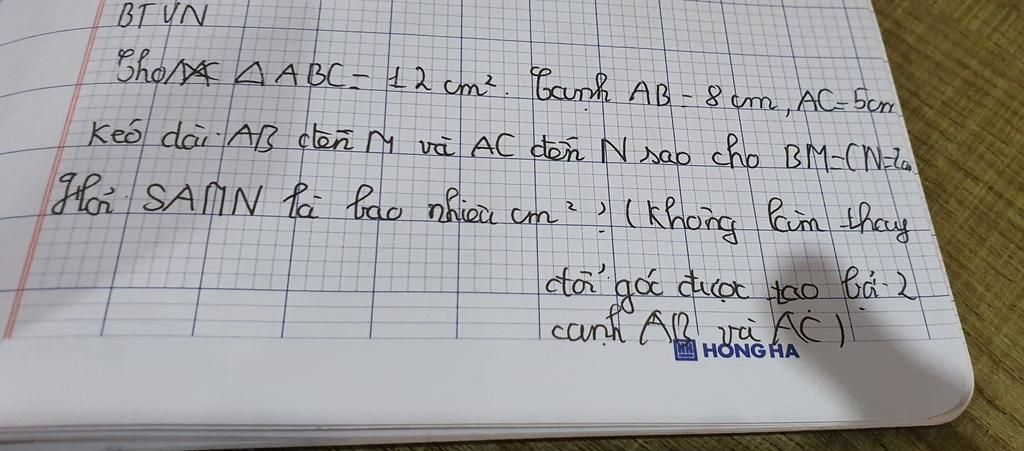 BTVN
Cho △ ABC = 12 cm². Cạnh AB = 8 cm, AC = 5cm
Kéo dài AB đến M và AC đến N sao cho BM = CN = 2cm
Hỏi SAMN là bao nhiêu cm² ? (Không làm thay
đổi góc được tạo bởi 2
cạnh AB và AC)
HONG HA